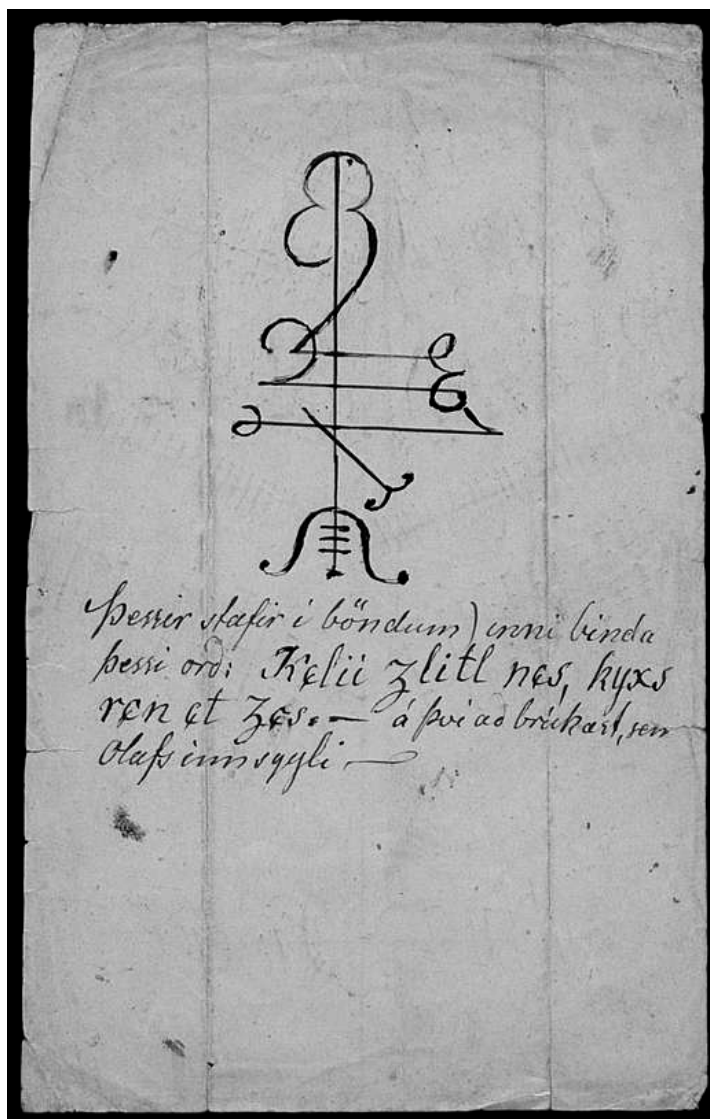 Þessir stafir í böndum) inni binda
þessi orð: Kęlii zlitl nęs, kyxs
ręn ęt zęs. — á því að brúkast, sem
Olafs innsygli —